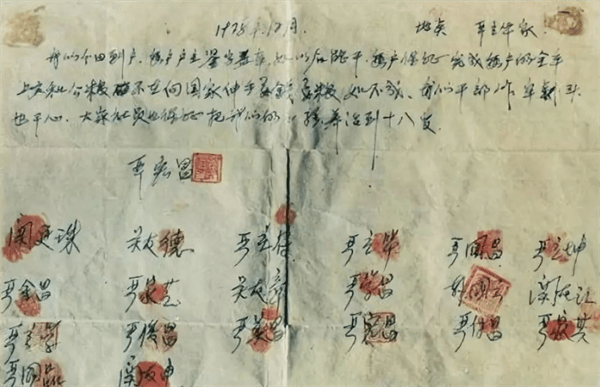 1978年12月 地点 严立华家
我们分田到户,每户户主签字盖章,如以后能干,每户保证完成每户的全年
上交和公粮不在向国家伸手要钱要粮,如不成,我们干部作牢刹头
也干心,大家社员也保证把我们的小孩养活到十八岁
严宏昌
关廷珠 关友德 严立符 严立华 严国昌 严立坤
严金昌 严家芝 关友章 严学昌 韩国云 关友江
严立学 严俊昌 严美昌 严宏昌 严付昌 严家其
严国品 关友申